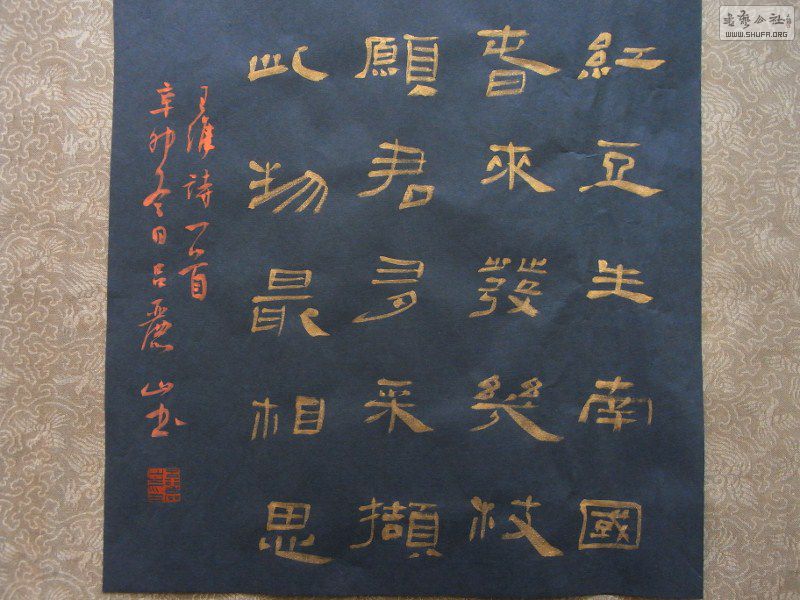 紅豆生南國
春來發幾枝
願君多采擷
此物最相思
王維詩一首
辛卯冬日呂麗山书
书艺公社
WWW.SHUFA.ORG